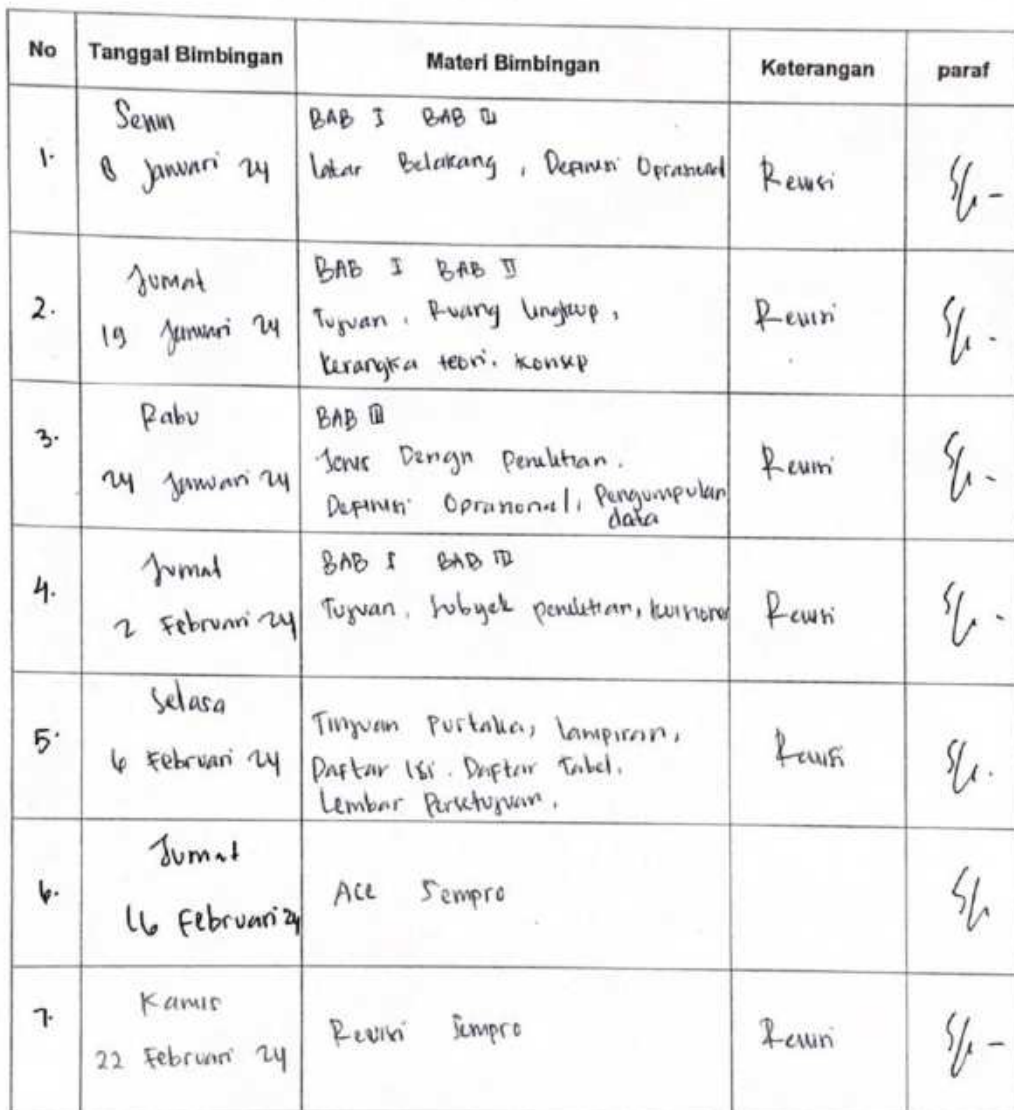 No Tanggal Bimbingan Materi Bimbingan Keterangan paraf
1. Senin
8 Januari 24
BAB I BAB III
Latar Belakang, Definisi Oprasional
Revisi
2. Jumat
19 Januari 24
BAB I BAB II
Tujuan, Ruang lingkup,
Kerangka teori, konsep
Revisi
3. Rabu
24 Januari 24
BAB III
Jenis Design Penelitian.
Definisi Oprasional, Pengumpulan
data
Revisi
4. Jumat
2 Februari 24
BAB I BAB III
Tujuan, Subyek penelitian, kuisioner
Revisi
5. Selasa
6 Februari 24
Tinjuan Pustaka, lampiran,
Daftar Isi. Daftar Tabel.
Lembar Persetujuan.
Revisi
6. Jumat
16 Februari 24
Acc Sempro
7. Kamis
22 Februari 24
Revisi Sempro
Revisi